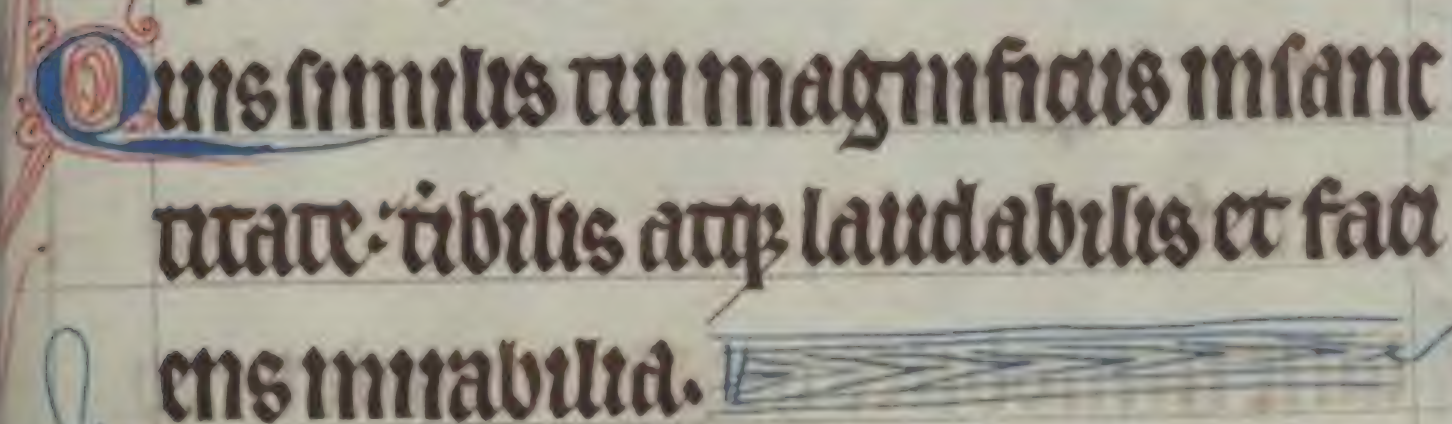 Quis ſimilis tui magnificus inſanc
titate: t̾ibilis atqꝫ laudabilis et faci
ens mirabilia.